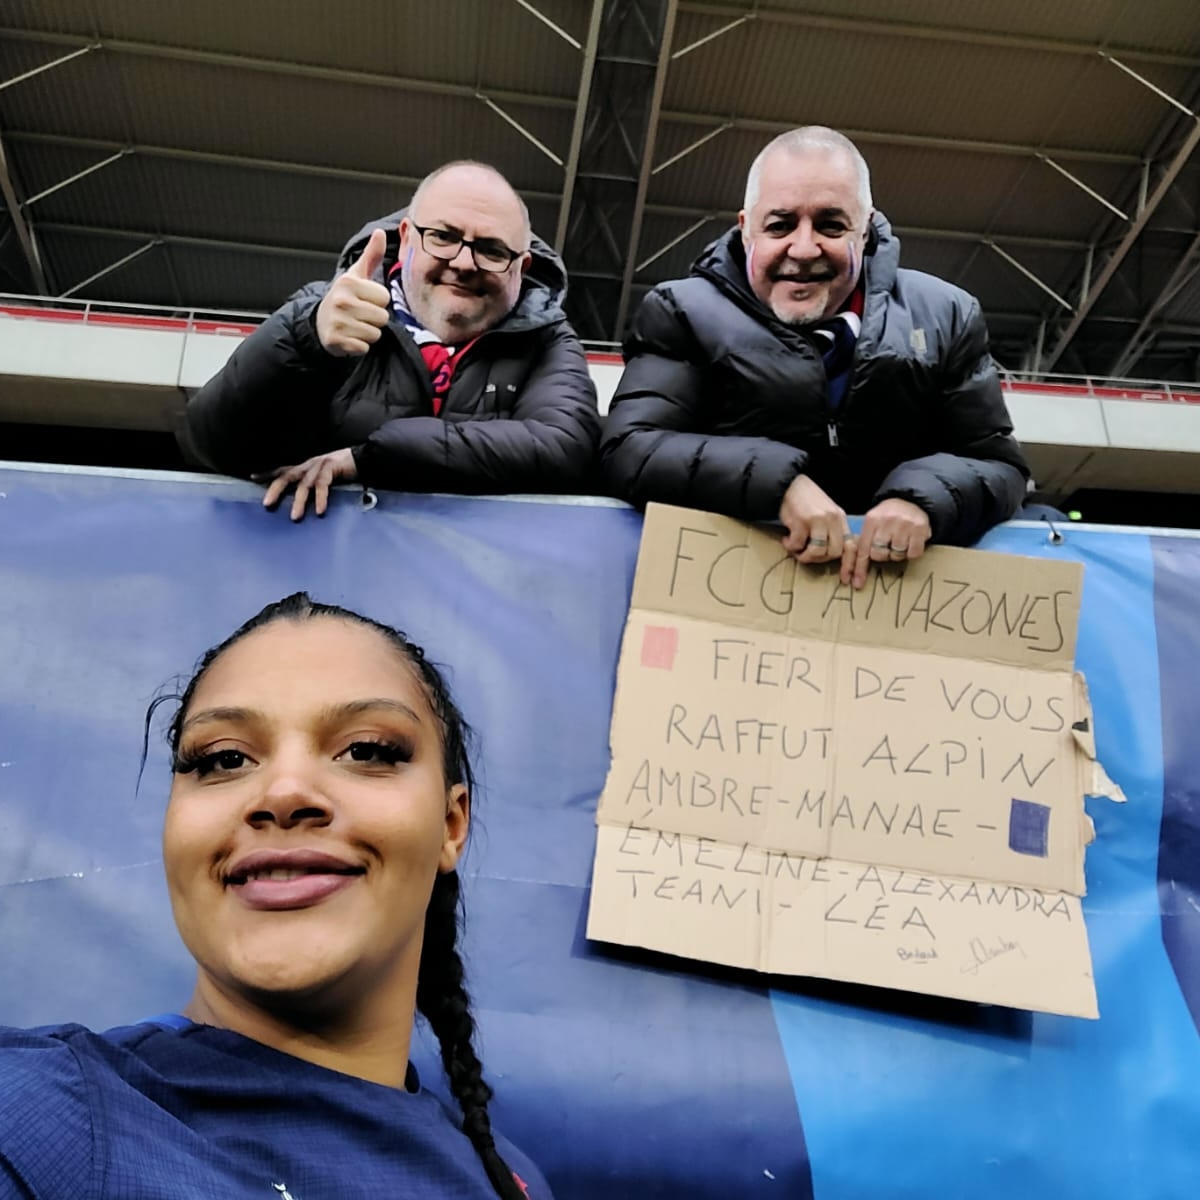 FCG AMAZONES
FIER DE VOUS
RAFFUT ALPIN
AMBRE-MANAE-
ÉMELINE-ALEXANDRA
TEANI- LÉA